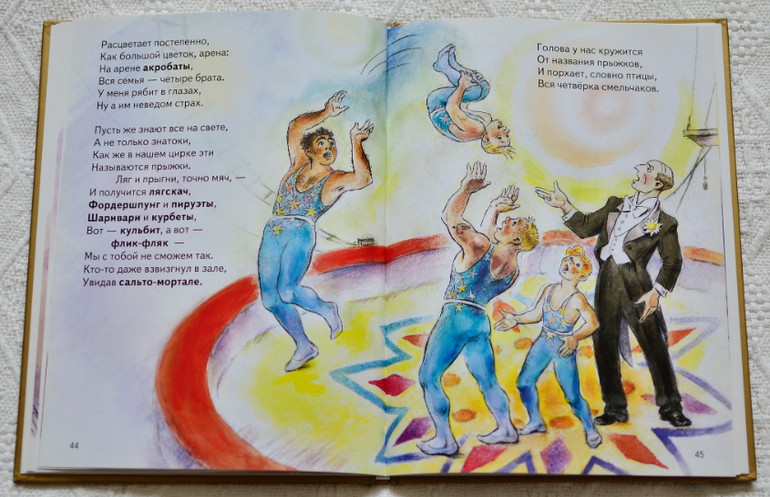 Расцветает постепенно,
Как большой цветок, арена:
На арене акробаты,
Вся семья — четыре брата.
У меня рябит в глазах,
Ну а им неведом страх.
Пусть же знают все на свете,
А не только знатоки,
Как же в нашем цирке эти
Называются прыжки.
Ляг и прыгни, точно мяч, —
И получится лягскач,
Фордершпунг и пируэты,
Шаривари и курбеты,
Вот — кульбит, а вот —
флик-фляк —
Мы с тобой не сможем так.
Кто-то даже взвизгнул в зале,
Увидав сальто-мортале.
44
Голова у нас кружится
От названия прыжков,
И порхает, словно птицы,
Вся четвёрка смельчаков.
45